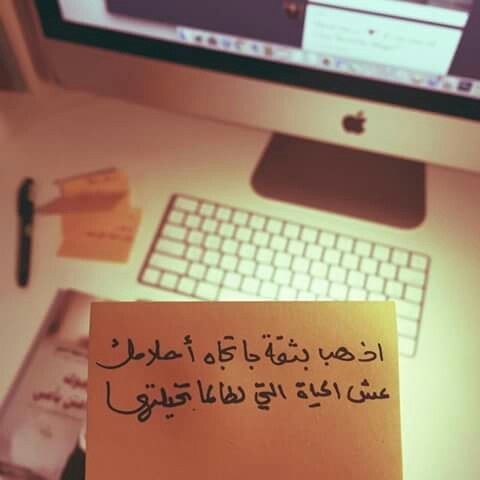 اذهب بثقة باتجاه أحلامك
عش الحياة التي لطالما تخيلتها